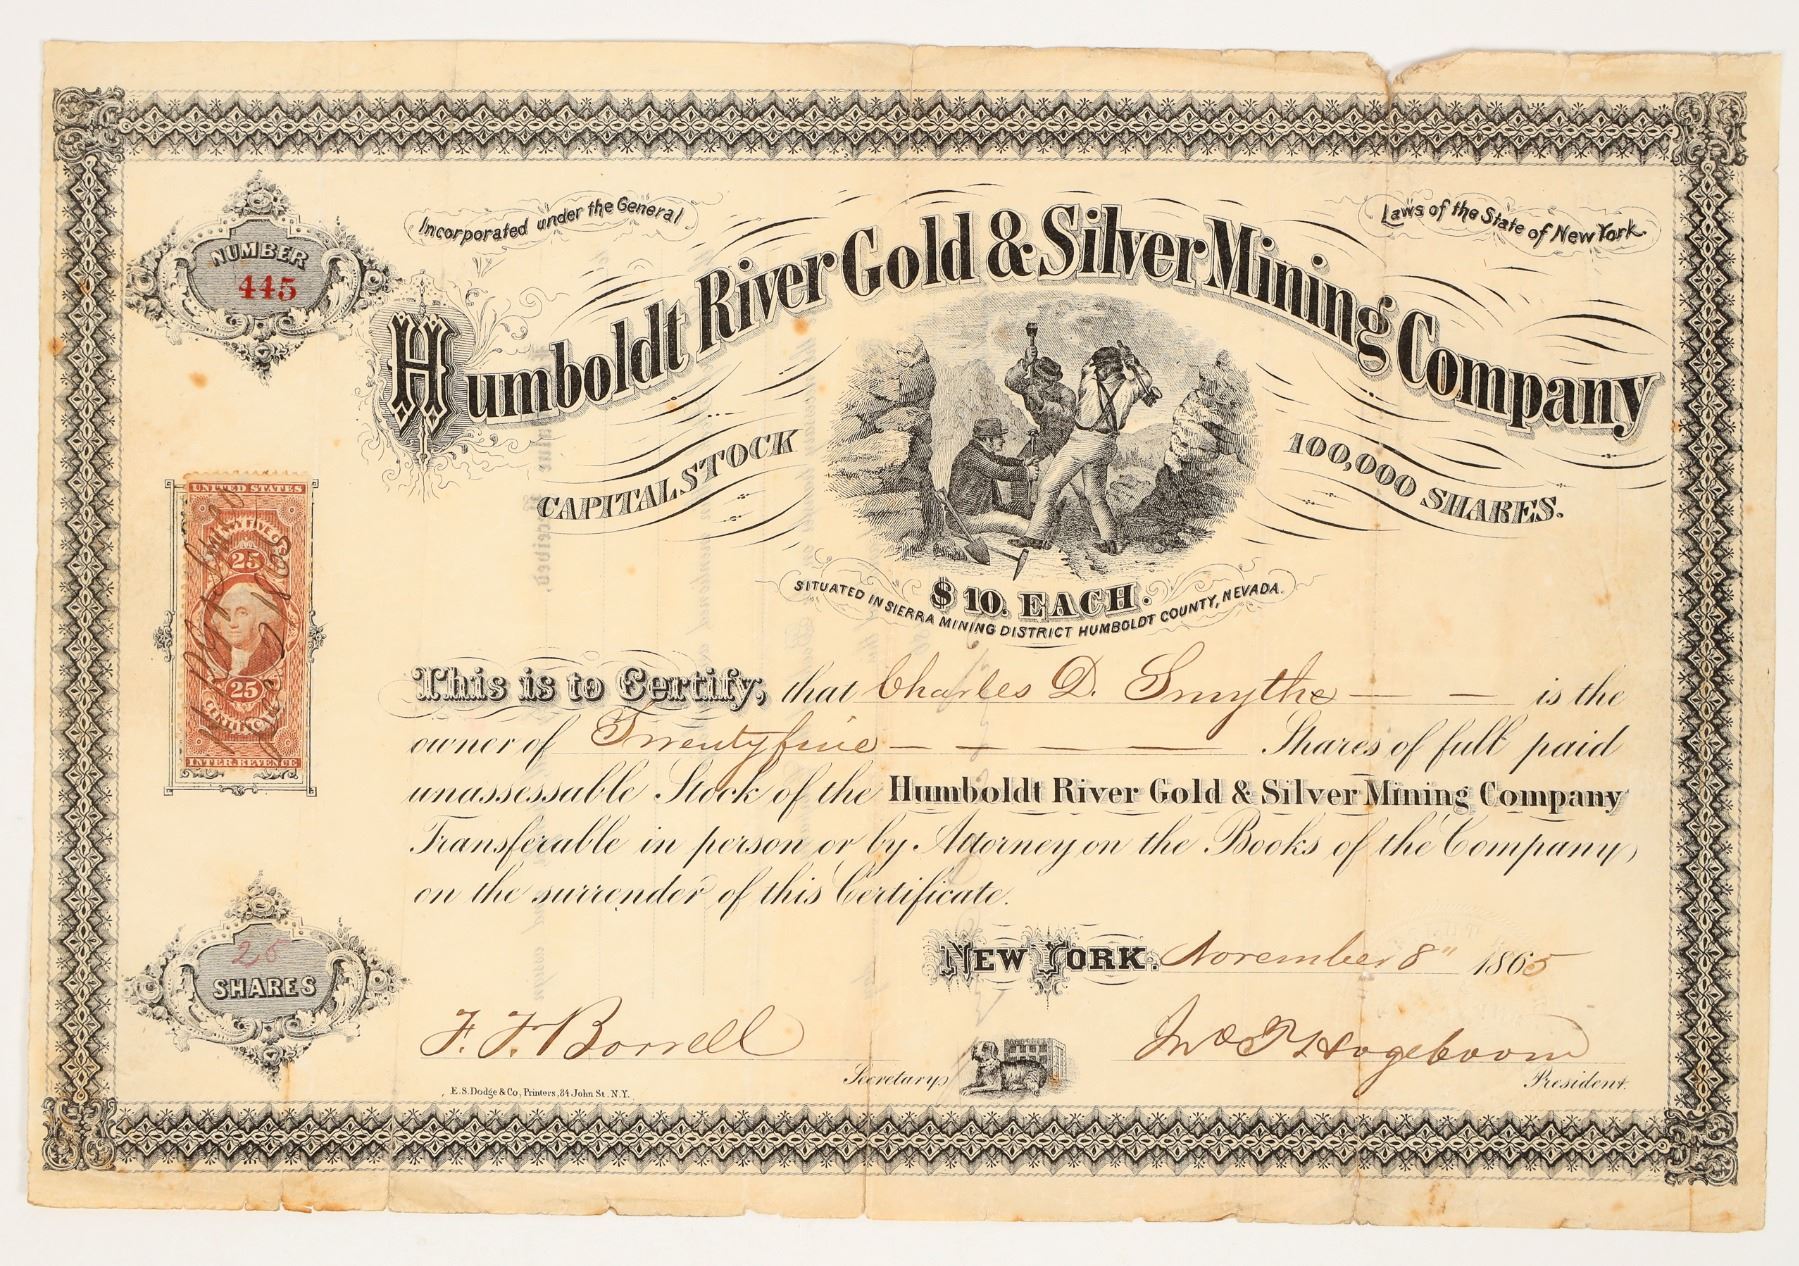 Incorporated under the General
Laws of the State of New York.
NUMBER
445
Humboldt River Gold & Silver Mining Company
CAPITAL STOCK
100,000 SHARES.
$10. EACH.
SITUATED IN SIERRA MINING DISTRICT HUMBOLDT COUNTY, NEVADA.
UNITED STATES
25
25
CERTIFICATE
INTER. REVENUE
This is to Certify, that Charles D. Smythe — — is the
owner of Twenty five — — — — Shares of full paid
unassessable Stock of the Humboldt River Gold & Silver Mining Company
Transferable in person or by Attorney on the Books of the Company,
on the surrender of this Certificate.
25
SHARES
NEW YORK. November 8" 1865
F. F. Borrell
Secretary,
Jno T Hogeboom
President.
E. S. Dodge & Co, Printers, 84 John St. N.Y.